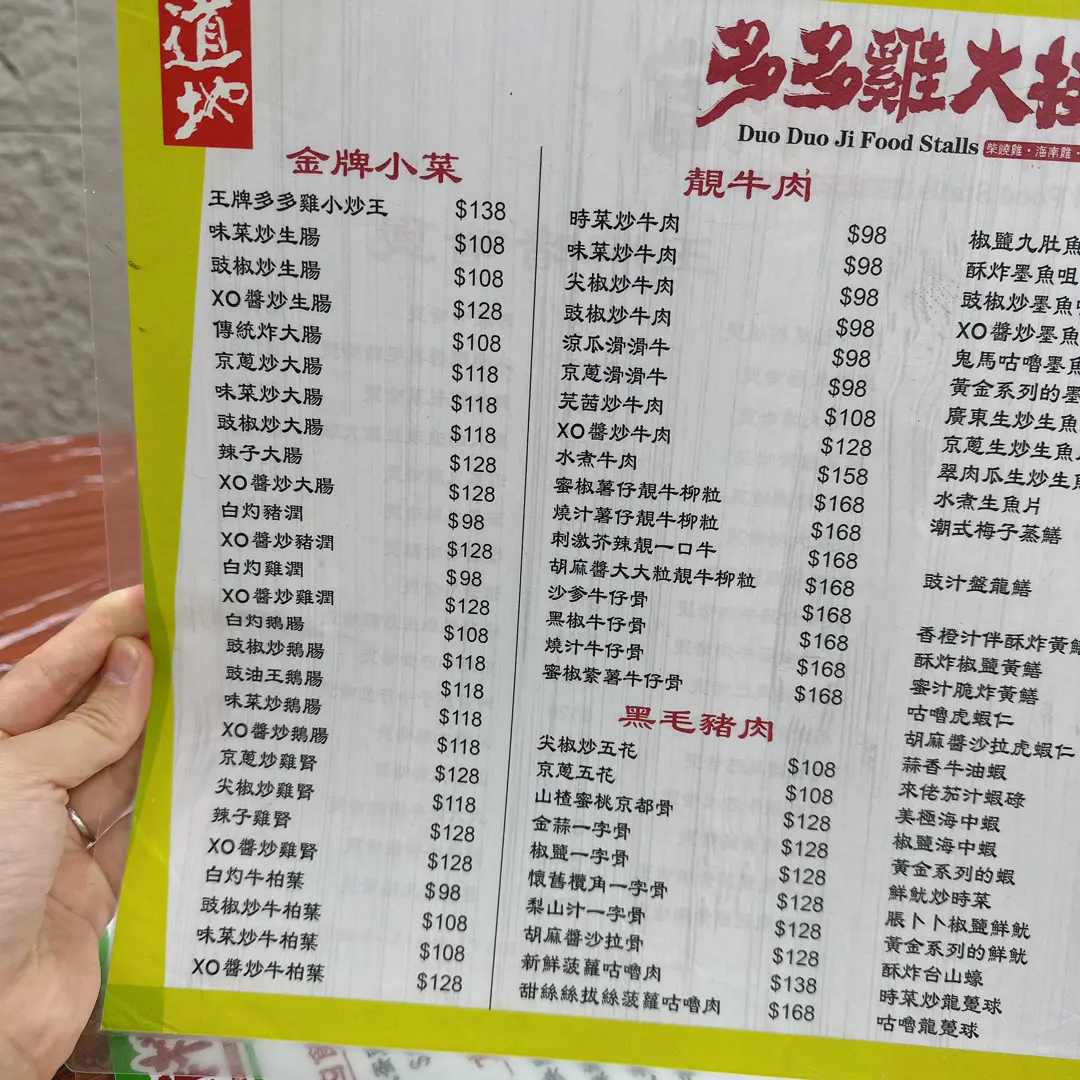 道地
多多雞大
Duo Duo Ji Food Stalls 柴燒雞・海南雞・
金牌小菜
王牌多多雞小炒王 $138
味菜炒生腸 $108
豉椒炒生腸 $108
XO醬炒生腸 $128
傳統炸大腸 $108
京蔥炒大腸 $118
味菜炒大腸 $118
豉椒炒大腸 $118
辣子大腸 $128
XO醬炒大腸 $128
白灼豬潤 $98
XO醬炒豬潤 $128
白灼雞潤 $98
XO醬炒雞潤 $128
白灼鵝腸 $108
豉椒炒鵝腸 $118
豉油王鵝腸 $118
味菜炒鵝腸 $118
XO醬炒鵝腸 $118
京蔥炒雞腎 $128
尖椒炒雞腎 $118
辣子雞腎 $128
XO醬炒雞腎 $128
白灼牛柏葉 $98
豉椒炒牛柏葉 $108
味菜炒牛柏葉 $108
XO醬炒牛柏葉 $128
靚牛肉
時菜炒牛肉 $98
味菜炒牛肉 $98
尖椒炒牛肉 $98
豉椒炒牛肉 $98
涼瓜滑滑牛 $98
京蔥滑滑牛 $98
芫茜炒牛肉 $108
XO醬炒牛肉 $128
水煮牛肉 $158
蜜椒薯仔靚牛柳粒 $168
燒汁薯仔靚牛柳粒 $168
刺激芥辣靚一口牛 $168
胡麻醬大大粒靚牛柳粒 $168
沙爹牛仔骨 $168
黑椒牛仔骨 $168
燒汁牛仔骨 $168
蜜椒紫薯牛仔骨 $168
黑毛豬肉
尖椒炒五花 $108
京蔥五花 $108
山楂蜜桃京都骨 $128
金蒜一字骨 $128
椒鹽一字骨 $128
懷舊欖角一字骨 $128
梨山汁一字骨 $128
胡麻醬沙拉骨 $128
新鮮菠蘿咕嚕肉 $138
甜絲絲拔絲菠蘿咕嚕肉 $168
椒鹽九肚魚
酥炸墨魚咀
豉椒炒墨魚
XO醬炒墨魚
鬼馬咕嚕墨魚
黃金系列的墨
廣東生炒生魚
京蔥生炒生魚
翠肉瓜生炒生魚
水煮生魚片
潮式梅子蒸鱔
豉汁盤龍鱔
香橙汁伴酥炸黃鱔
酥炸椒鹽黃鱔
蜜汁脆炸黃鱔
咕嚕虎蝦仁
胡麻醬沙拉虎蝦仁
蒜香牛油蝦
來佬茄汁蝦碌
美極海中蝦
椒鹽海中蝦
黃金系列的蝦
鮮魷炒時菜
脹卜卜椒鹽鮮魷
黃金系列的鮮魷
酥炸台山蠔
時菜炒龍躉球
咕嚕龍躉球